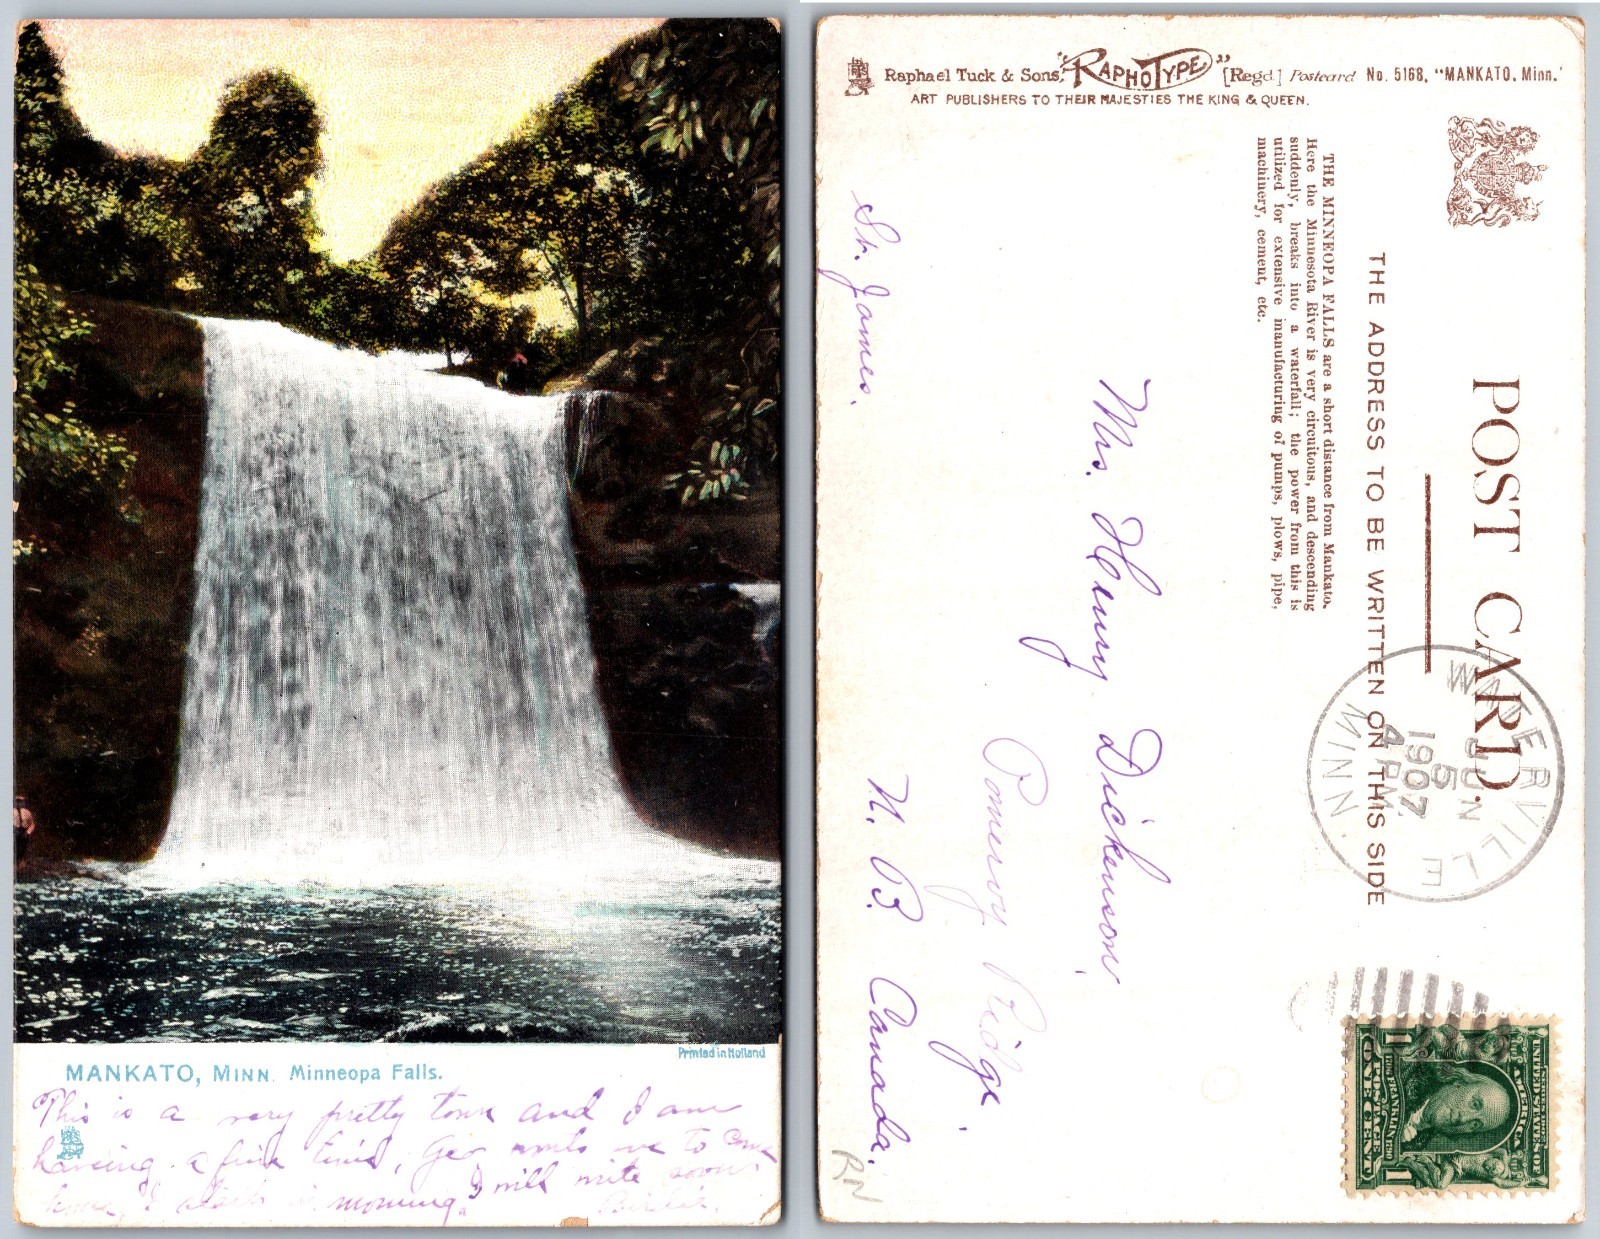 Printed in Holland
MANKATO, MINN. Minneopa Falls.
This is a very pretty town and I am
having a fine time, Geo wants me to come
home, I in morning. I will write soon
Raphael Tuck & Sons' "RAPHOTYPE" [Regd.] Postcard No. 5168, "MANKATO, Minn."
ART PUBLISHERS TO THEIR MAJESTIES THE KING & QUEEN.
POST CARD.
THE ADDRESS TO BE WRITTEN ON THIS SIDE
THE MINNEOPA FALLS are a short distance from Mankato.
Here the Minnesota River is very circuitous, and descending
suddenly, breaks into a waterfall; the power from this is
utilized for extensive manufacturing of pumps, plows, pipe,
machinery, cement, etc.
WATERVILLE
JUN
5
4 PM.
1907
MINN.
Mrs. Henry Dickenson
Pomeroy Ridge
St. James.
N. B. Canada.
SERIES 1902
UNITED STATES OF AMERICA
FRANKLIN
1706 1790
POSTAGE
ONE CENT
1 1
RN